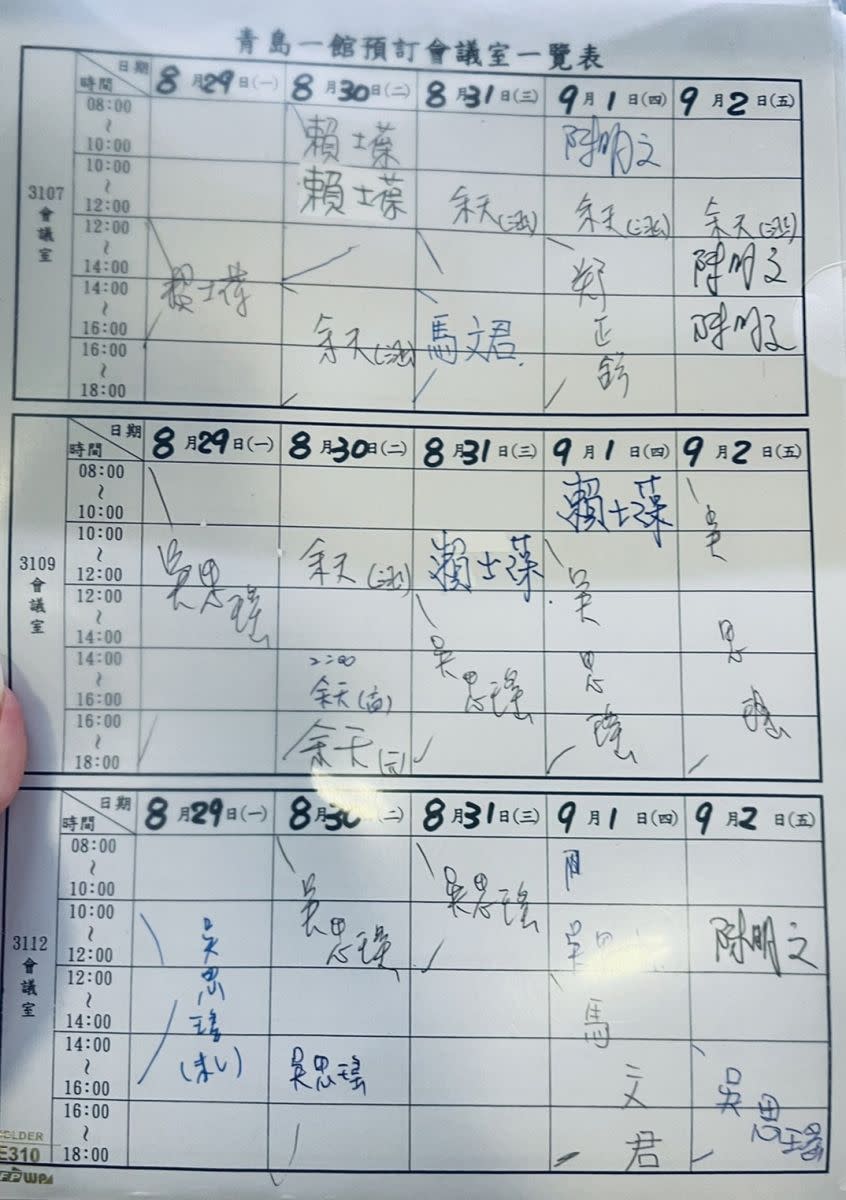 青島一館預訂會議室一覽表
日期 8月29日(一) 8月30日(二) 8月31日(三) 9月1日(四) 9月2日(五)
時間
3107會議室
08:00~10:00 賴士葆 陳明文
10:00~12:00 賴士葆 余天 余天 余天
12:00~14:00 賴士葆 陳明文
14:00~16:00 余天 馬文君 鄭正鈐 陳明文
16:00~18:00
日期 8月29日(一) 8月30日(二) 8月31日(三) 9月1日(四) 9月2日(五)
時間
3109會議室
08:00~10:00 賴士葆 吳
10:00~12:00 吳思瑤 余天 賴士葆 吳
12:00~14:00 吳思瑤 思
14:00~16:00 2:00 余天 思 瑤
16:00~18:00 余天 瑤
日期 8月29日(一) 8月30日(二) 8月31日(三) 9月1日(四) 9月2日(五)
時間
3112會議室
08:00~10:00 吳思瑤
10:00~12:00 吳思瑤 吳思瑤 吳思 陳明文
12:00~14:00 馬
14:00~16:00 吳思瑤 文 吳思瑤
16:00~18:00 君
E310